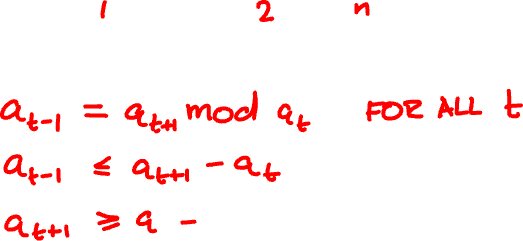 1 2 n
a_{t-1} = a_{t+1} mod a_t FOR ALL t
a_{t-1} ≤ a_{t+1} - a_t
a_{t+1} ≥ a -